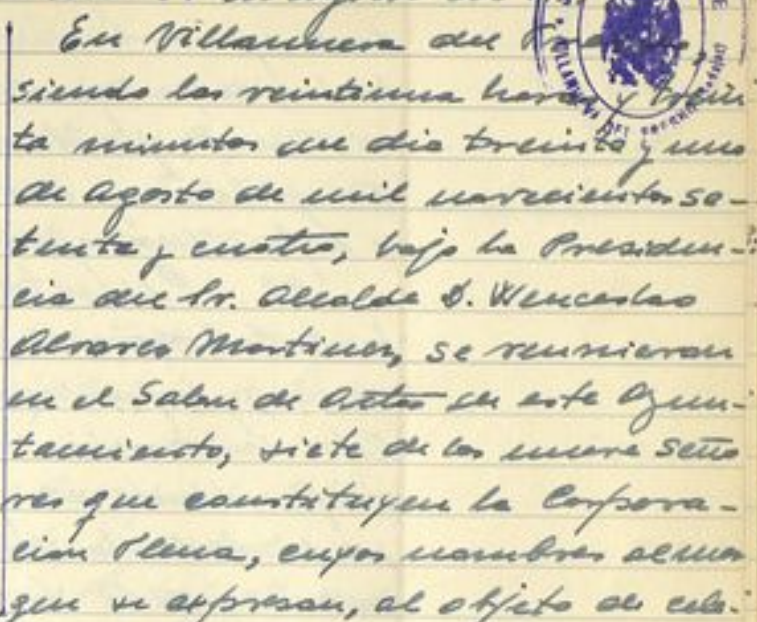 En Villanueva del
siendo las veintiuna horas y trein
ta minutos del dia treinta y uno
de Agosto de mil novecientos se-
tenta y cuatro, bajo la Presiden-
cia del Sr. Alcalde D. Wenceslao
Alvarez Martinez, se reunieron
en el Salon de Actos de este Ayun-
tamiento, siete de los nueve Seño
res que constituyen la Corpora-
ción Plena, cuyos nombres al mar
gen se expresan, al objeto de cele-